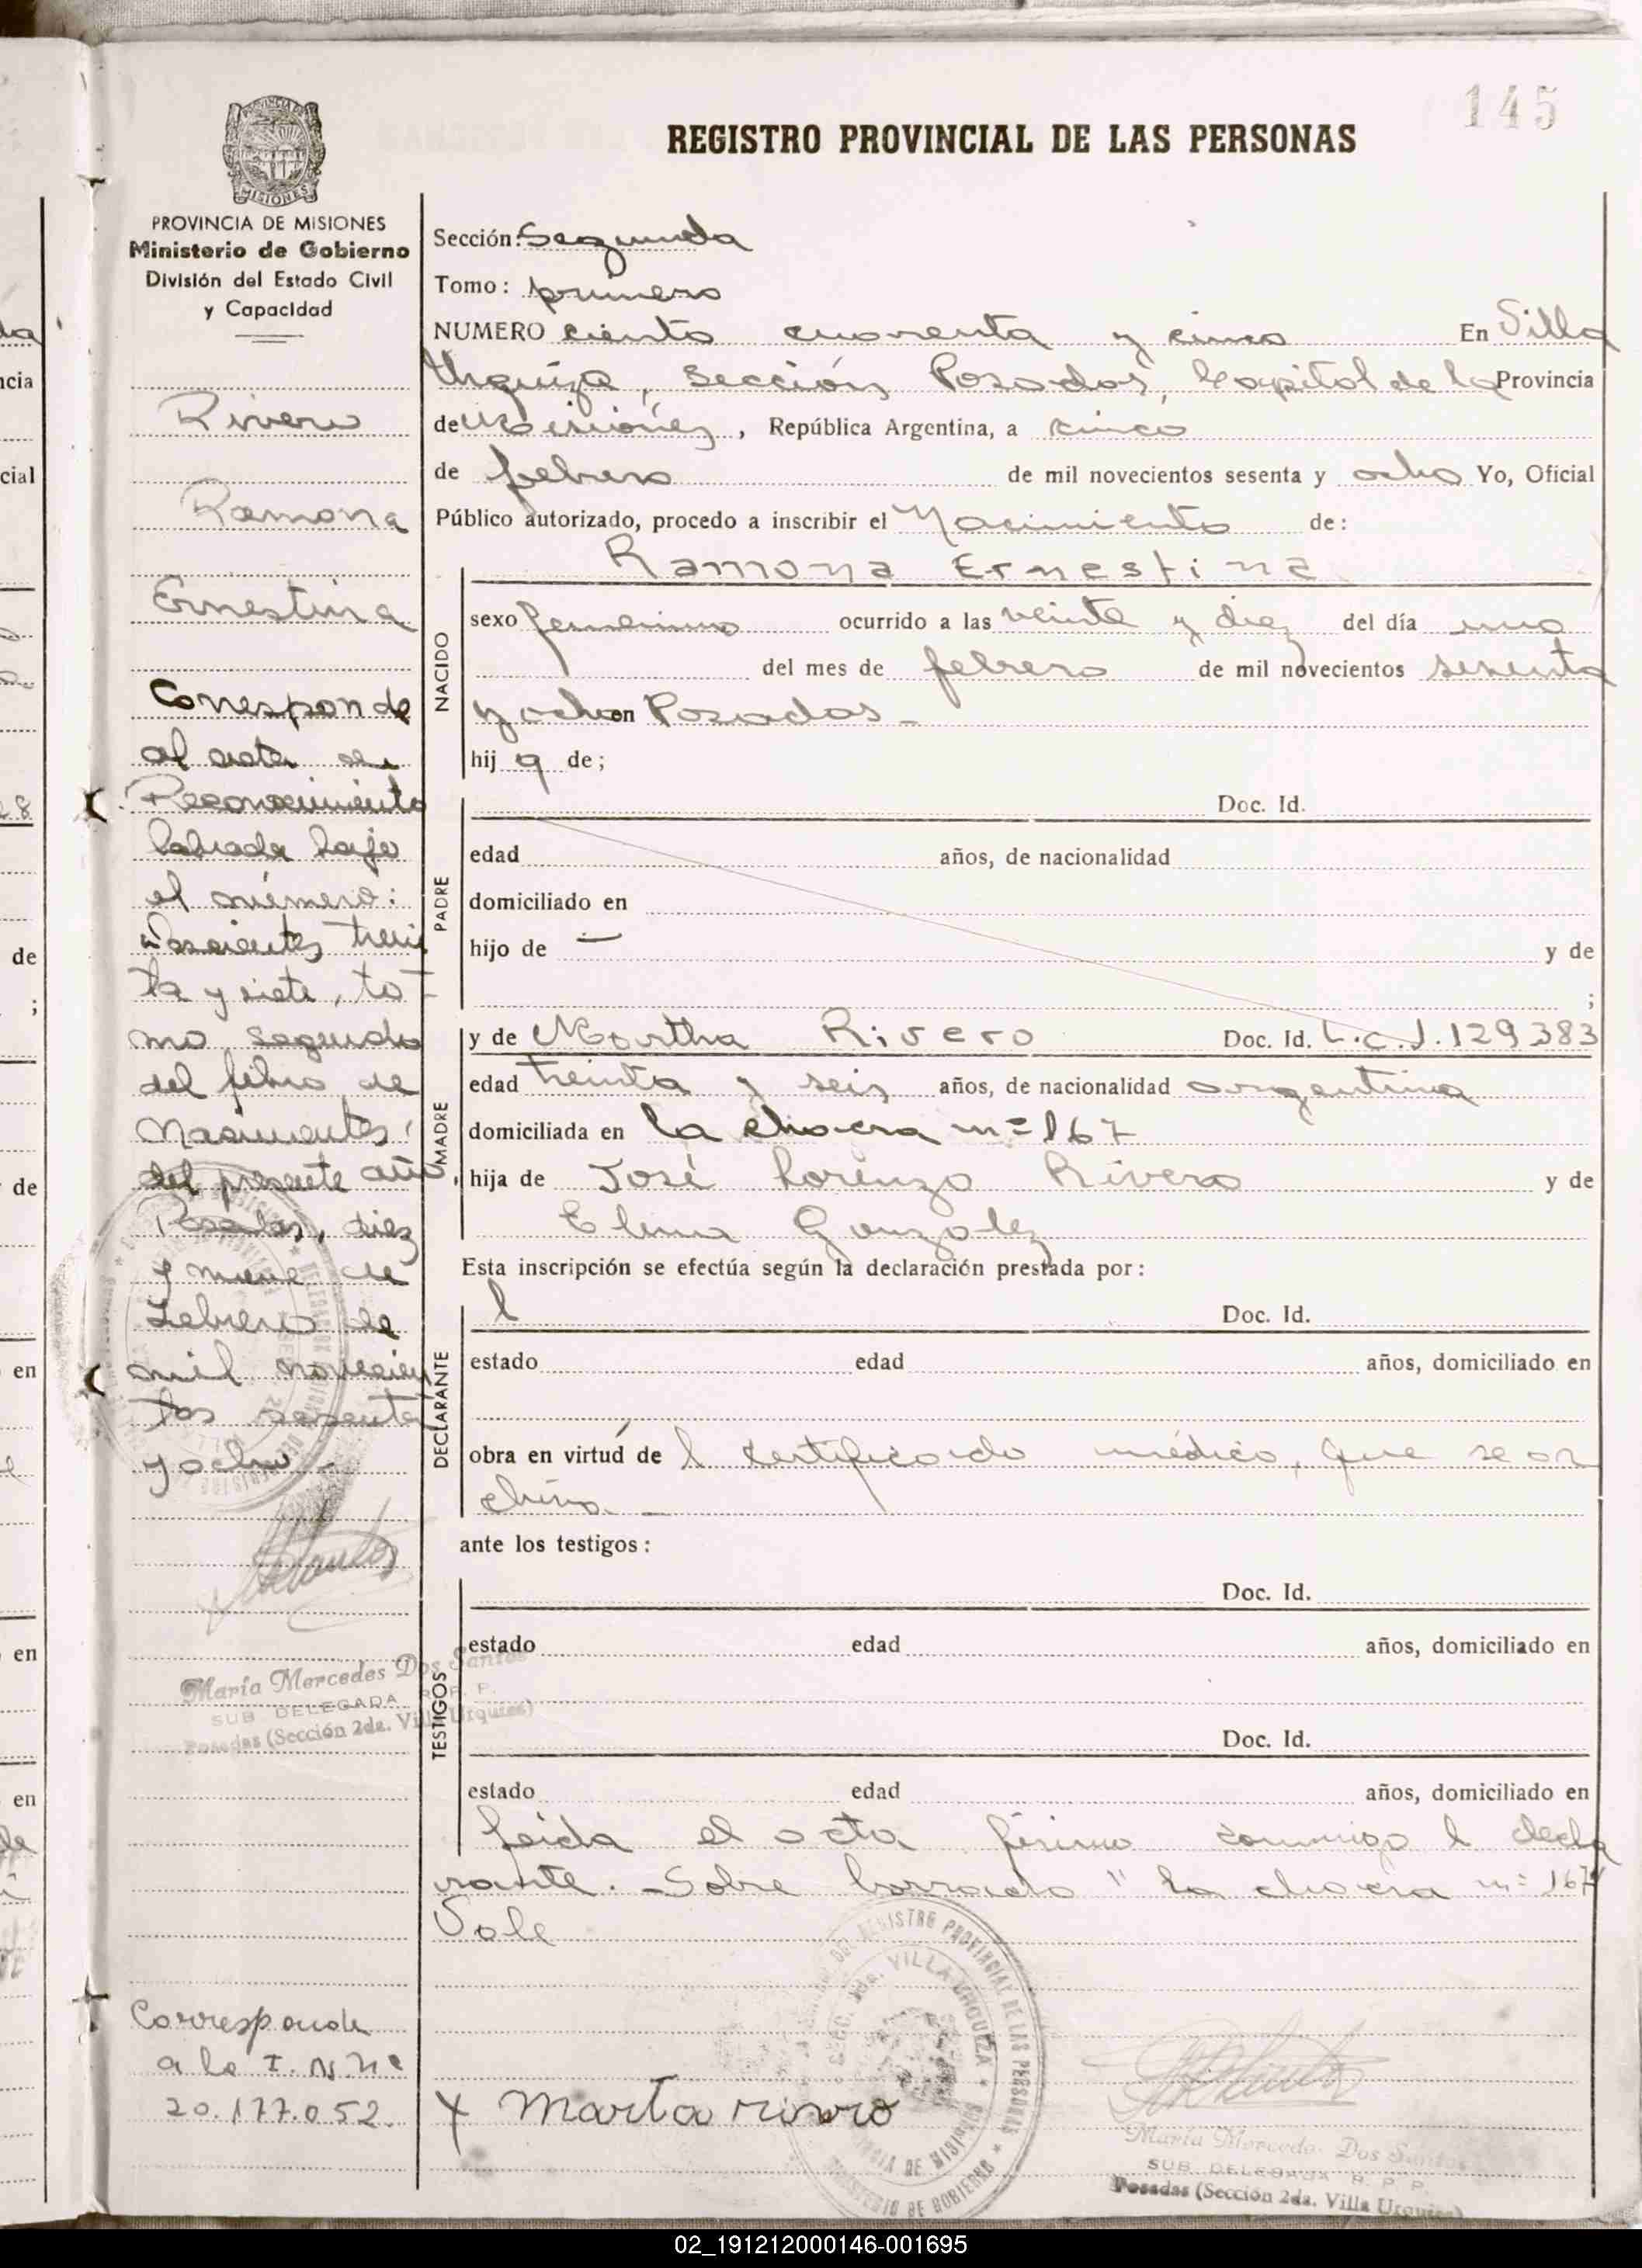 145
REGISTRO PROVINCIAL DE LAS PERSONAS
PROVINCIA DE
MISIONES
PROVINCIA DE MISIONES
Ministerio de Gobierno
División del Estado Civil
y Capacidad
Rivero
Ramona
Ernestina
Corresponde
al acta de
Reconocimiento
labrada bajo
el número:
Doscientos trein
ta y siete, to-
mo segundo
del libro de
Nacimientos,
del presente año,
Posadas, diez
y nueve de
Febrero de
mil novecien
tos sesenta
y ocho -
María Mercedes Dos Santos
SUB DELEGADA R. P. P.
Posadas (Sección 2da. Villa Urquiza)
Corresponde
a la I. N Nº
20.177.052.
Sección: Segunda
Tomo: primero
NUMERO ciento cuarenta y cinco En Villa
Urquiza, Sección Posadas, Capital de la Provincia
de Misiones, República Argentina, a cinco
de febrero de mil novecientos sesenta y ocho Yo, Oficial
Público autorizado, procedo a inscribir el Nacimiento de:
Ramona Ernestina
NACIDO
sexo femenino ocurrido a las veinte y diez del día uno
del mes de febrero de mil novecientos sesenta
y ocho en Posadas -
hij a de;
PADRE
Doc. Id.
edad años, de nacionalidad
domiciliado en
hijo de — y de
;
MADRE
y de Martha Rivero Doc. Id. L.C.1.129383
edad treinta y seis años, de nacionalidad argentina
domiciliada en la chacra nº 167
hija de José Lorenzo Rivero y de
Elena Gonzalez
Esta inscripción se efectúa según la declaración prestada por:
DECLARANTE
l Doc. Id.
estado edad años, domiciliado en
obra en virtud de l certificado médico, que se ar
chiva. —
ante los testigos:
TESTIGOS
Doc. Id.
estado edad años, domiciliado en
Doc. Id.
estado edad años, domiciliado en
Leida el acta firma conmigo l decla
rante. - Sobre borrado "la chacra nº 167"
Vale
REGISTRO PROVINCIAL DE LAS PERSONAS
SECC. 2da. VILLA URQUIZA
MINISTERIO DE GOBIERNO
x Marta rivero
María Mercedes Dos Santos
SUB DELEGADA R. P. P.
Posadas (Sección 2da. Villa Urquiza)
02_191212000146-001695